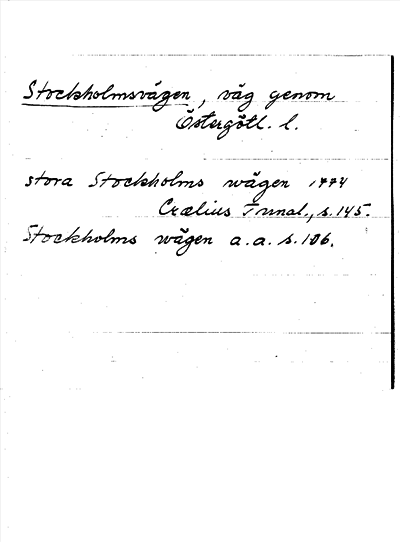 Stockholmsvägen, väg genom
Östergötl. l.
stora Stockholms wägen 1774
Crælius Tunal., s. 145.
Stockholms wägen a. a. s. 186.